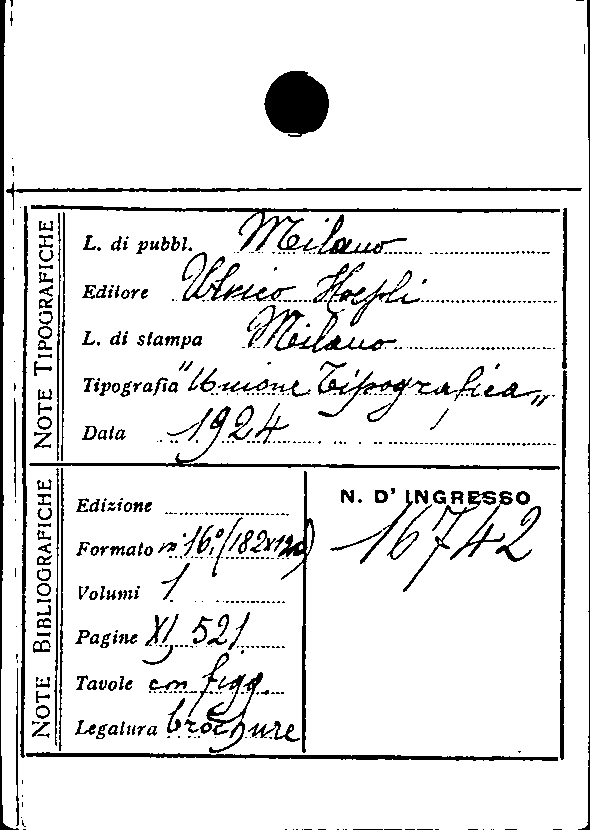 NOTE TIPOGRAFICHE
L. di pubbl. Milano
Editore Ulrico Hoepli
L. di stampa Milano
Tipografia "Unione Tipografica„
Data 1924
NOTE BIBLIOGRAFICHE
Edizione
Formato in 16.° (182x120)
Volumi 1
Pagine XI, 521
Tavole con figg.
Legatura brochure
N. D' INGRESSO
16742